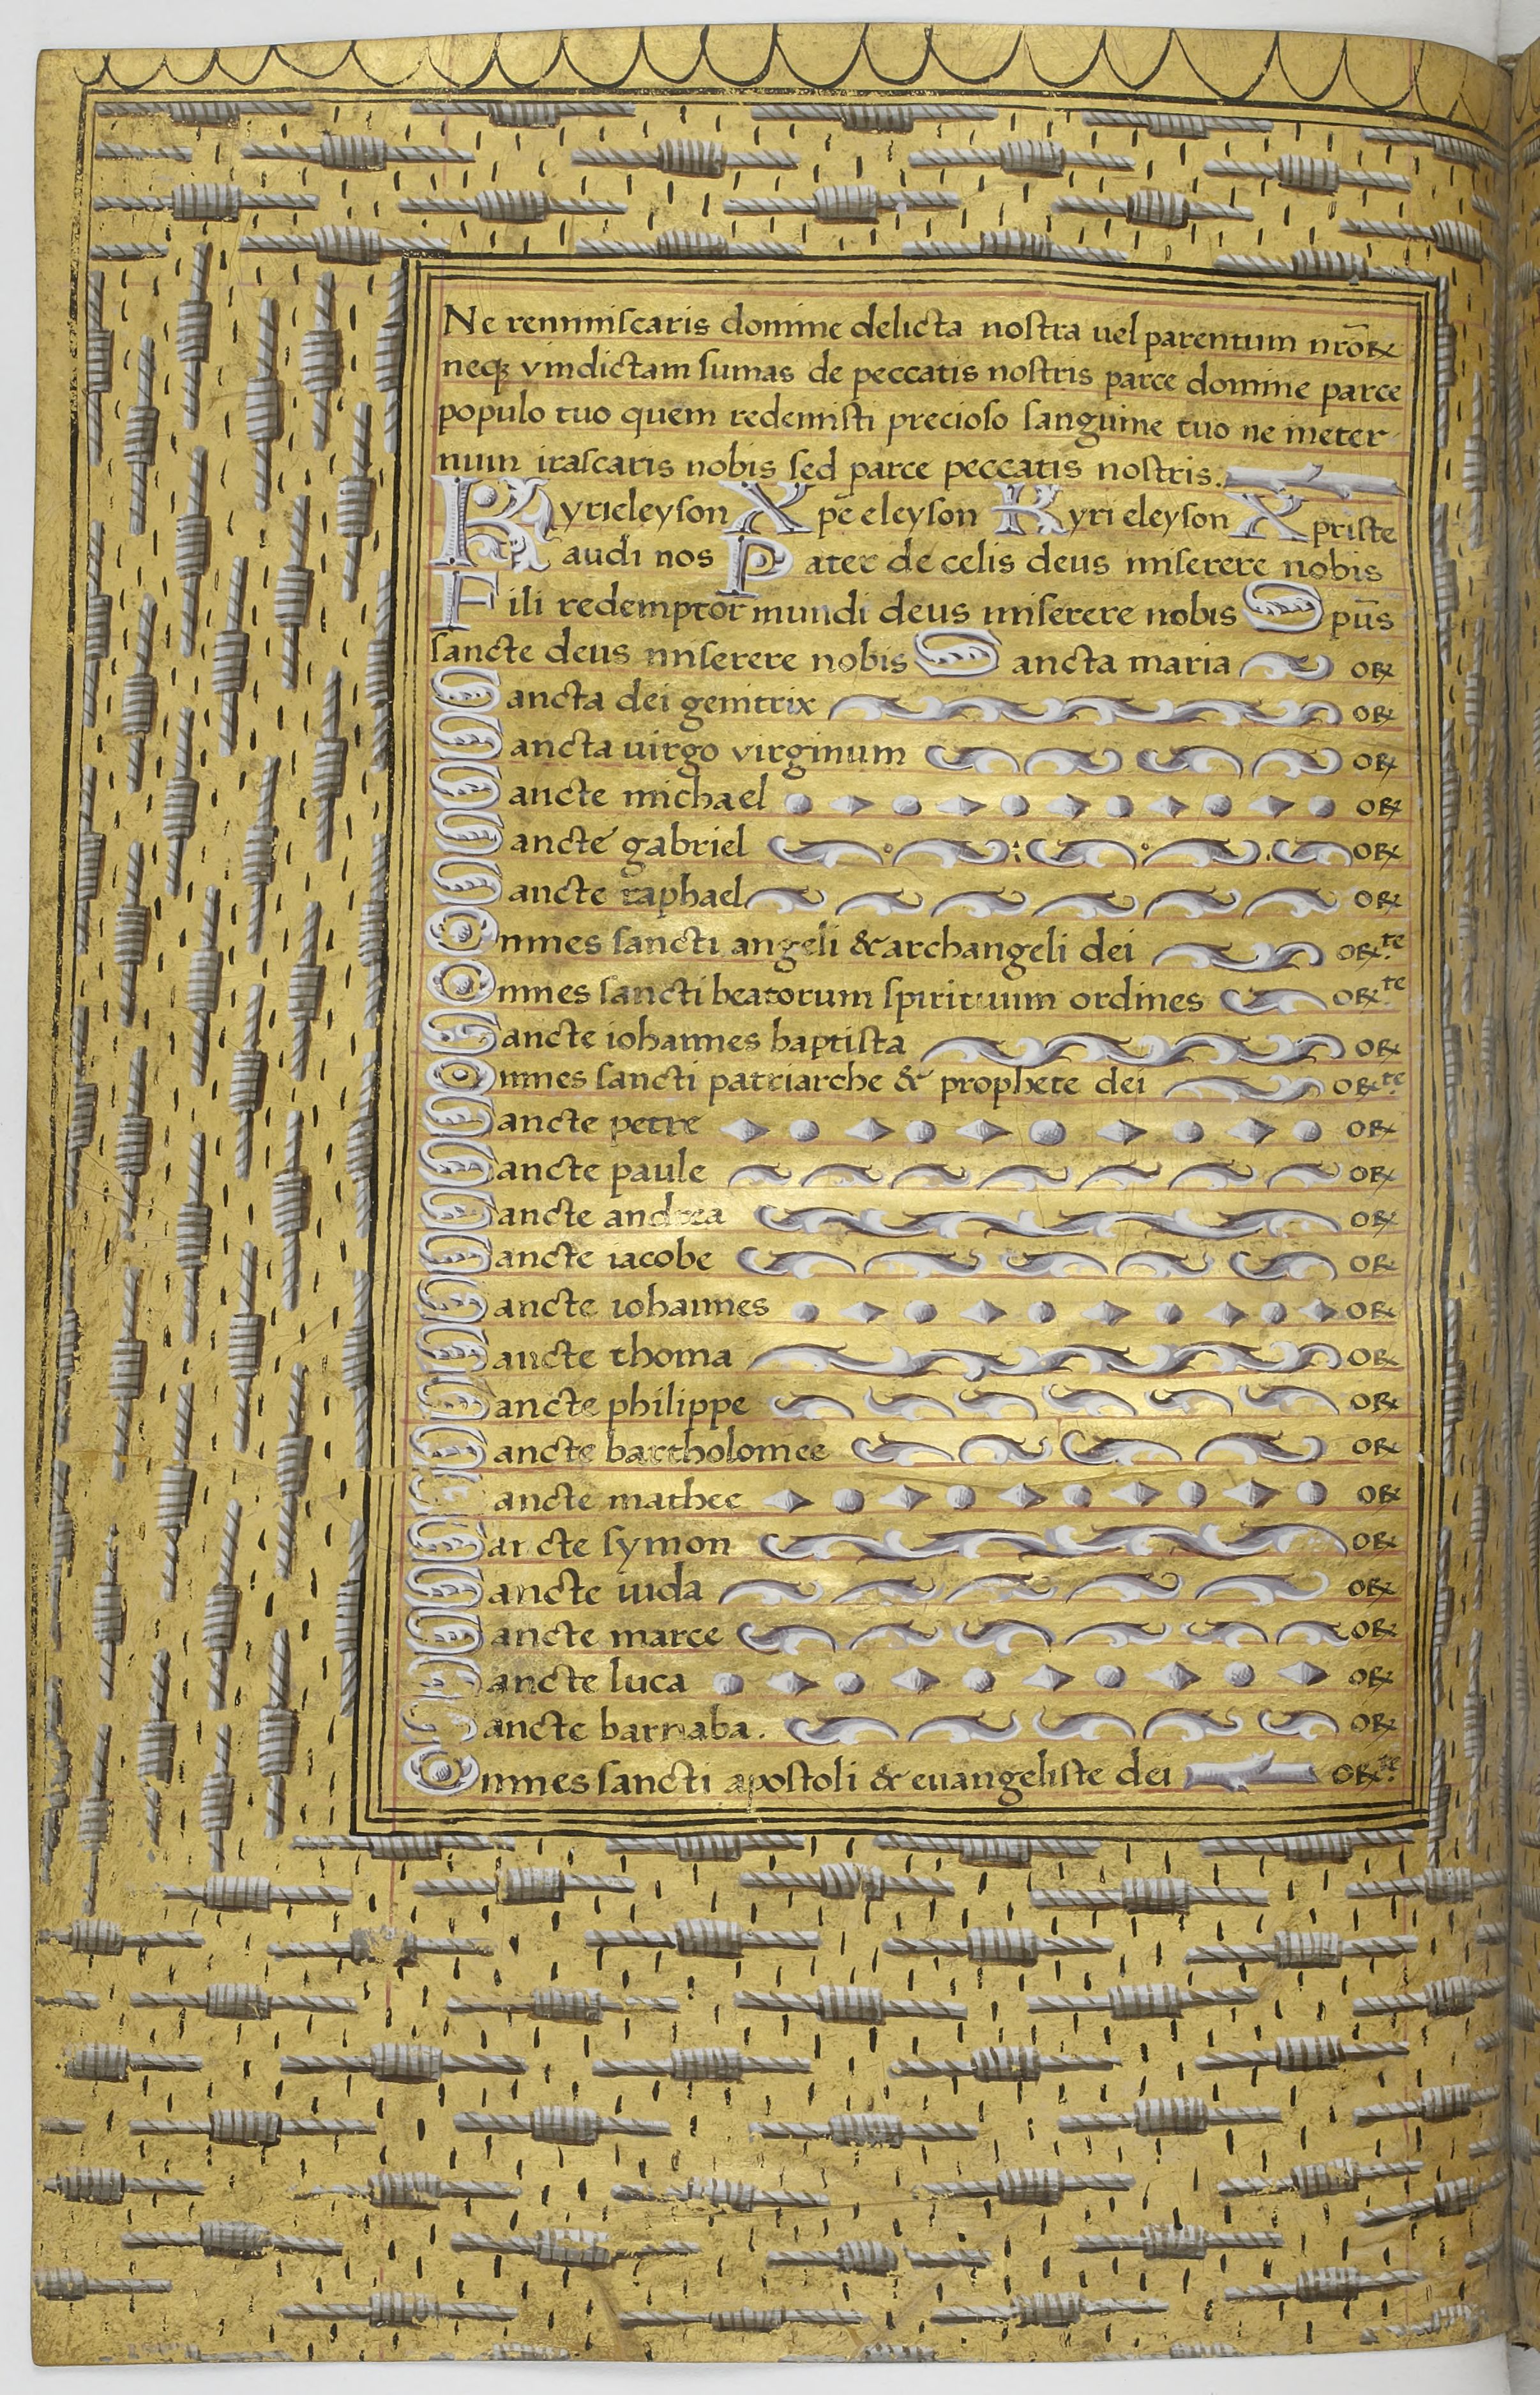 Ne reminiscaris domine delicta nostra uel parentum nr̄oꝝ
neqȝ vindictam sumas de peccatis nostris parce domine parce
populo tuo quem redemisti precioso sanguine tuo ne ineter
num irascaris nobis sed parce peccatis nostris.
Kyrieleyson Xp̄e eleyson Kyri eleyson Xpriste
audi nos Pater de celis deus miserere nobis
Fili redemptor mundi deus miserere nobis Sp̄us
sancte deus miserere nobis Sancta maria oꝝ
Sancta dei genitrix oꝝ
Sancta uirgo virginum oꝝ
Sancte michael oꝝ
Sancte gabriel oꝝ
Sancte raphael oꝝ
Omnes sancti angeli & archangeli dei oꝝ.te
Omnes sancti beatorum spirituum ordines oꝝ.te
Sancte iohannes baptista oꝝ
Omnes sancti patriarche & prophete dei oꝝ.te
Sancte petre oꝝ
Sancte paule oꝝ
Sancte andrea oꝝ
Sancte iacobe oꝝ
Sancte iohannes oꝝ
Sancte thoma oꝝ
Sancte philippe oꝝ
Sancte bartholomee oꝝ
Sancte mathee oꝝ
Sancte symon oꝝ
Sancte iuda oꝝ
Sancte marce oꝝ
Sancte luca oꝝ
Sancte barnaba. oꝝ
Omnes sancti apostoli & euangeliste dei oꝝ.te